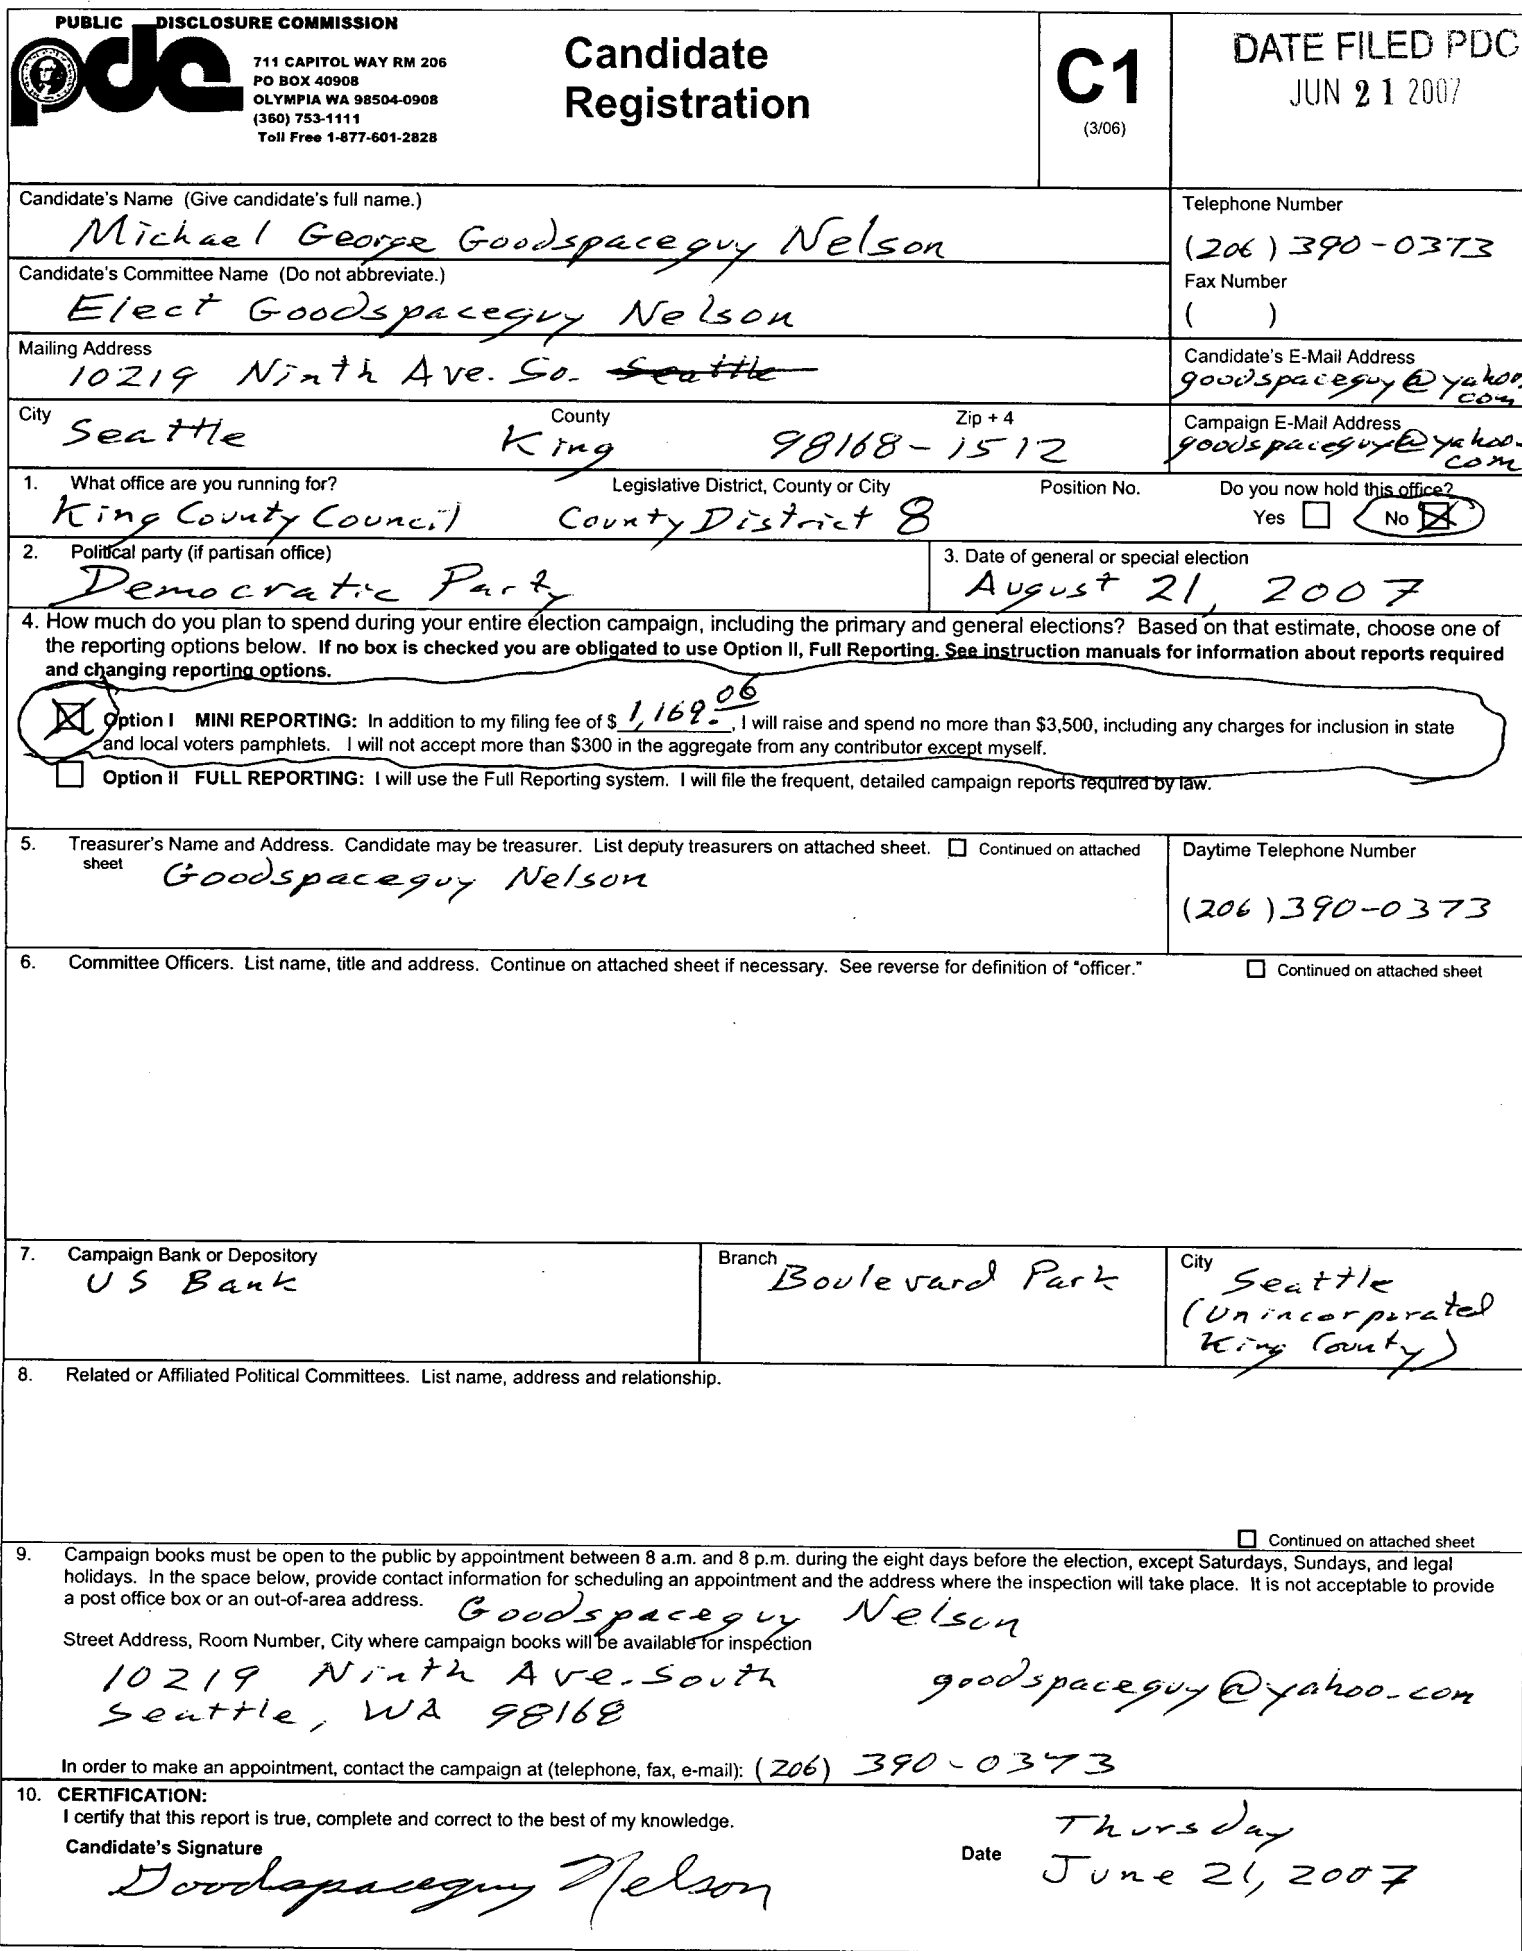 PUBLIC DISCLOSURE COMMISSION
pdc
711 CAPITOL WAY RM 206
PO BOX 40908
OLYMPIA WA 98504-0908
(360) 753-1111
Toll Free 1-877-601-2828
Candidate
Registration
C1
(3/06)
DATE FILED PDC
JUN 21 2007
Candidate's Name (Give candidate's full name.)
Michael George Goodspaceguy Nelson
Telephone Number
(206) 390-0373
Candidate's Committee Name (Do not abbreviate.)
Elect Goodspaceguy Nelson
Fax Number
( )
Mailing Address
10219 Ninth Ave. So. Seattle
Candidate's E-Mail Address
goodspaceguy@yahoo.
com
City County Zip + 4
Seattle King 98168-1512
Campaign E-Mail Address
goodspaceguy@yahoo.
com
1. What office are you running for? Legislative District, County or City Position No. Do you now hold this office?
King County Council County District 8 Yes No
2. Political party (if partisan office)
Democratic Party
3. Date of general or special election
August 21, 2007
4. How much do you plan to spend during your entire election campaign, including the primary and general elections? Based on that estimate, choose one of
the reporting options below. If no box is checked you are obligated to use Option II, Full Reporting. See instruction manuals for information about reports required
and changing reporting options.
Option I MINI REPORTING: In addition to my filing fee of $ 1,169.06, I will raise and spend no more than $3,500, including any charges for inclusion in state
and local voters pamphlets. I will not accept more than $300 in the aggregate from any contributor except myself.
Option II FULL REPORTING: I will use the Full Reporting system. I will file the frequent, detailed campaign reports required by law.
5. Treasurer's Name and Address. Candidate may be treasurer. List deputy treasurers on attached sheet. Continued on attached
sheet
Goodspaceguy Nelson
Daytime Telephone Number
(206) 390-0373
6. Committee Officers. List name, title and address. Continue on attached sheet if necessary. See reverse for definition of "officer." Continued on attached sheet
7. Campaign Bank or Depository
US Bank
Branch
Boulevard Park
City
Seattle
(Unincorporated
King County)
8. Related or Affiliated Political Committees. List name, address and relationship.
Continued on attached sheet
9. Campaign books must be open to the public by appointment between 8 a.m. and 8 p.m. during the eight days before the election, except Saturdays, Sundays, and legal
holidays. In the space below, provide contact information for scheduling an appointment and the address where the inspection will take place. It is not acceptable to provide
a post office box or an out-of-area address. Goodspaceguy Nelson
Street Address, Room Number, City where campaign books will be available for inspection
10219 Ninth Ave. South goodspaceguy@yahoo.com
Seattle, WA 98168
In order to make an appointment, contact the campaign at (telephone, fax, e-mail): (206) 390-0373
10. CERTIFICATION:
I certify that this report is true, complete and correct to the best of my knowledge.
Candidate's Signature
Goodspaceguy Nelson
Date
Thursday
June 21, 2007